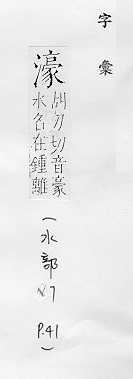 字彙
濠
胡刀切音豪
水名在鍾離
(水部
P.41)